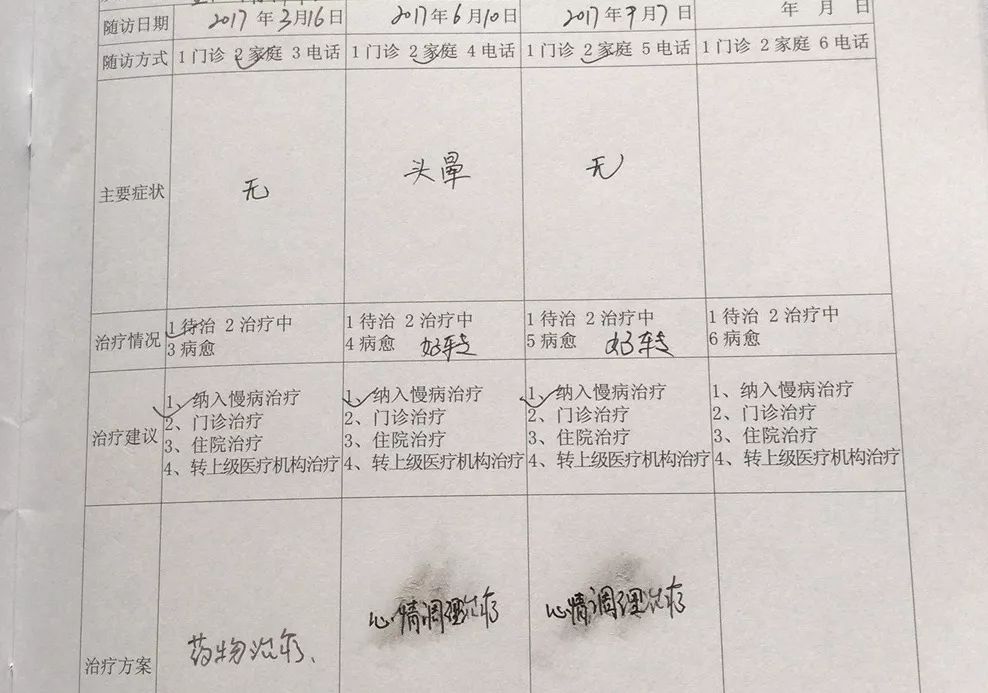 随访日期 2017年3月16日 2017年6月10日 2017年9月7日 年 月 日
随访方式 1门诊 2家庭 3电话 1门诊 2家庭 4电话 1门诊 2家庭 5电话 1门诊 2家庭 6电话
主要症状 无 头晕 无
治疗情况 1待治 2治疗中 1待治 2治疗中 1待治 2治疗中 1待治 2治疗中
3病愈 4病愈 好转 5病愈 好转 6病愈
治疗建议 1、纳入慢病治疗 1、纳入慢病治疗 1、纳入慢病治疗 1、纳入慢病治疗
2、门诊治疗 2、门诊治疗 2、门诊治疗 2、门诊治疗
3、住院治疗 3、住院治疗 3、住院治疗 3、住院治疗
4、转上级医疗机构治疗 4、转上级医疗机构治疗 4、转上级医疗机构治疗 4、转上级医疗机构治疗
治疗方案 药物治疗、 心情调理治疗 心情调理治疗